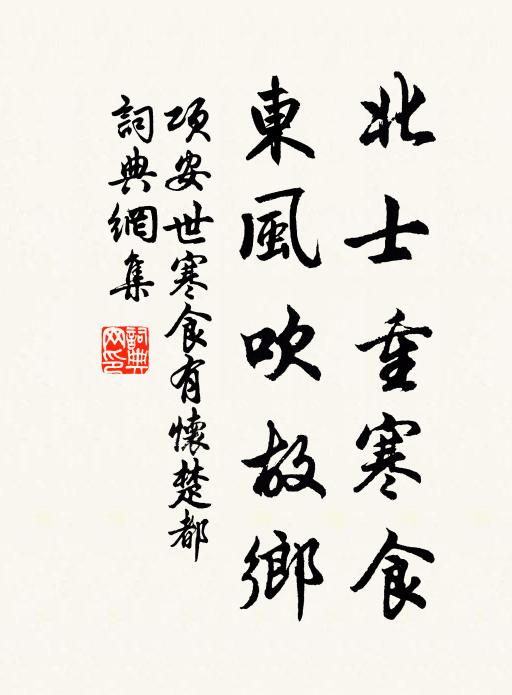 北士重寒食
東風吹故鄉
項安世寒食有懷楚都
詞典網集
詞典網印